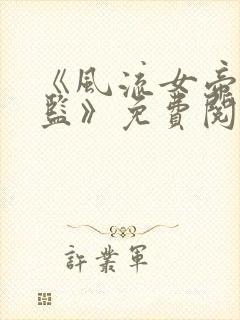 《風流女帝
監》免費閱
許業軍